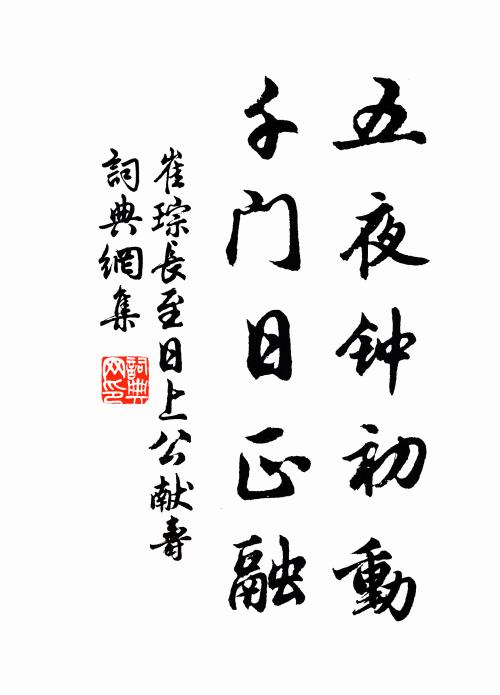 五夜钟初動
千门日正融
崔琮長至日上公献壽
詞典網集
詞典
网印